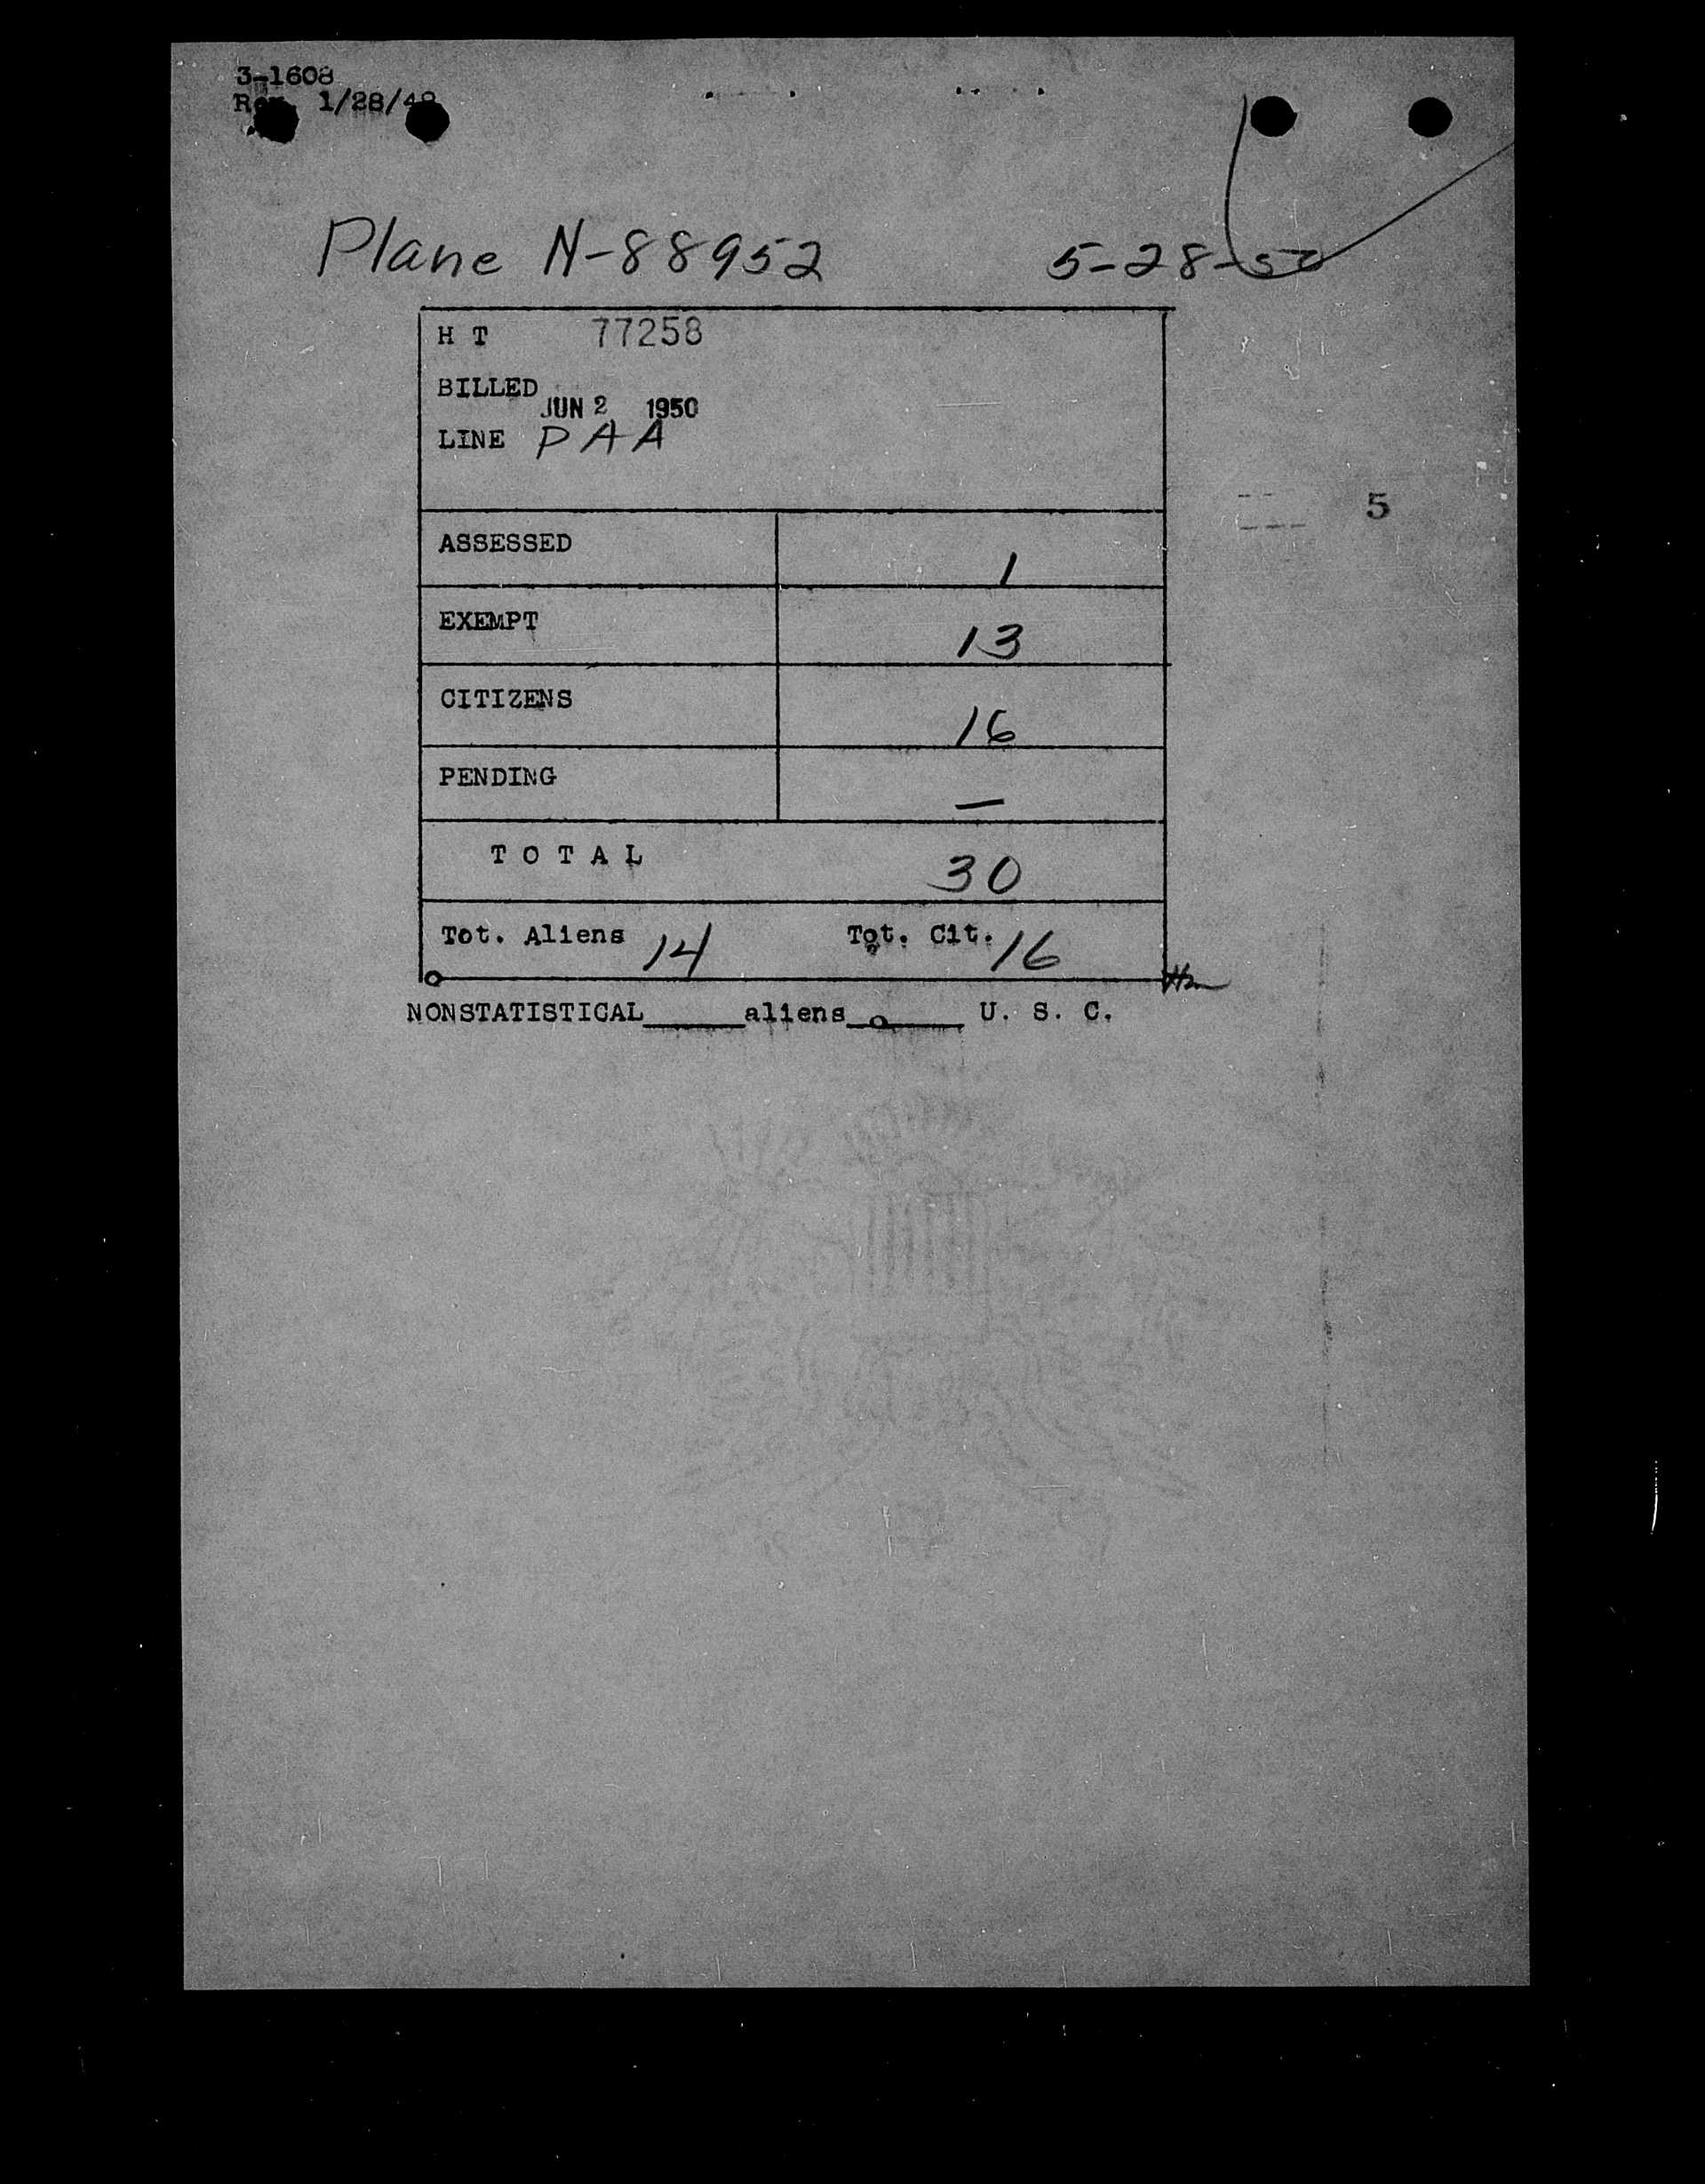 3-1608
Rev. 1/28/48
Plane N-88952 5-28-50
H T 77258
BILLED
JUN 2 1950
LINE PAA
5
ASSESSED 1
EXEMPT 13
CITIZENS 16
PENDING —
TOTAL 30
Tot. Aliens 14 Tot. Cit. 16
NONSTATISTICAL______aliens______ U. S. C.